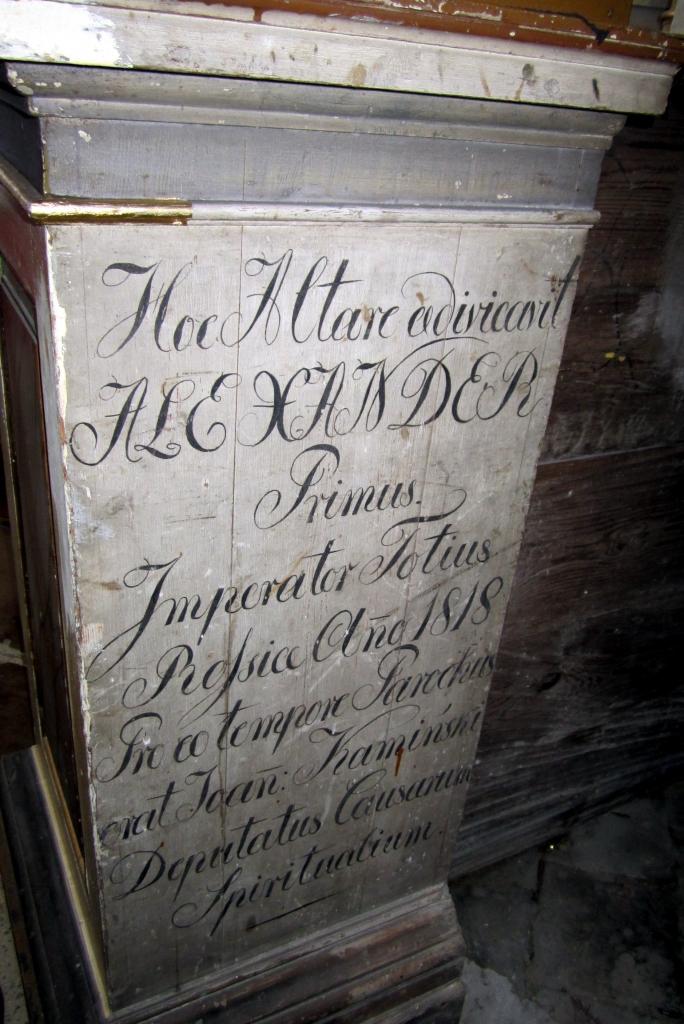 Hoc Altare ædivicavit
ALEXANDER
Primus.
Imperator Totius
Roſsiæ Año 1818
Pro eo tempore Parochus
erat Joañ: Kamiński
Deputatus Causarum
Spiritualium.